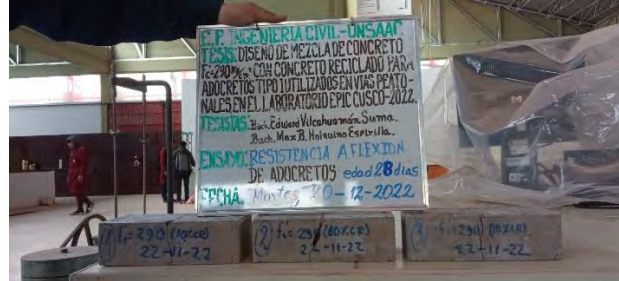 E.P. INGENIERIA CIVIL-UNSAAC
TESIS: DISEÑO DE MEZCLA DE CONCRETO
F'c=290 CON CONCRETO RECICLADO PARA
ADOCRETOS TIPO I UTILIZADOS EN VIAS PEATO-
NALES EN EL LABORATORIO EPIC CUSCO-2022.
TESISTAS: Bach. Eduard Vilcahuamán Suma.
Bach. Max B. Holguino Espirilla.
ENSAYO: RESISTENCIA A FLEXION
DE ADOCRETOS edad 28 dias
FECHA: Martes, 20-12-2022
1 f'c=290 (10%CR)
22-11-22
2 f'c=290 (10%CR)
22-11-22
3 f'c=290 (10%CR)
22-11-22